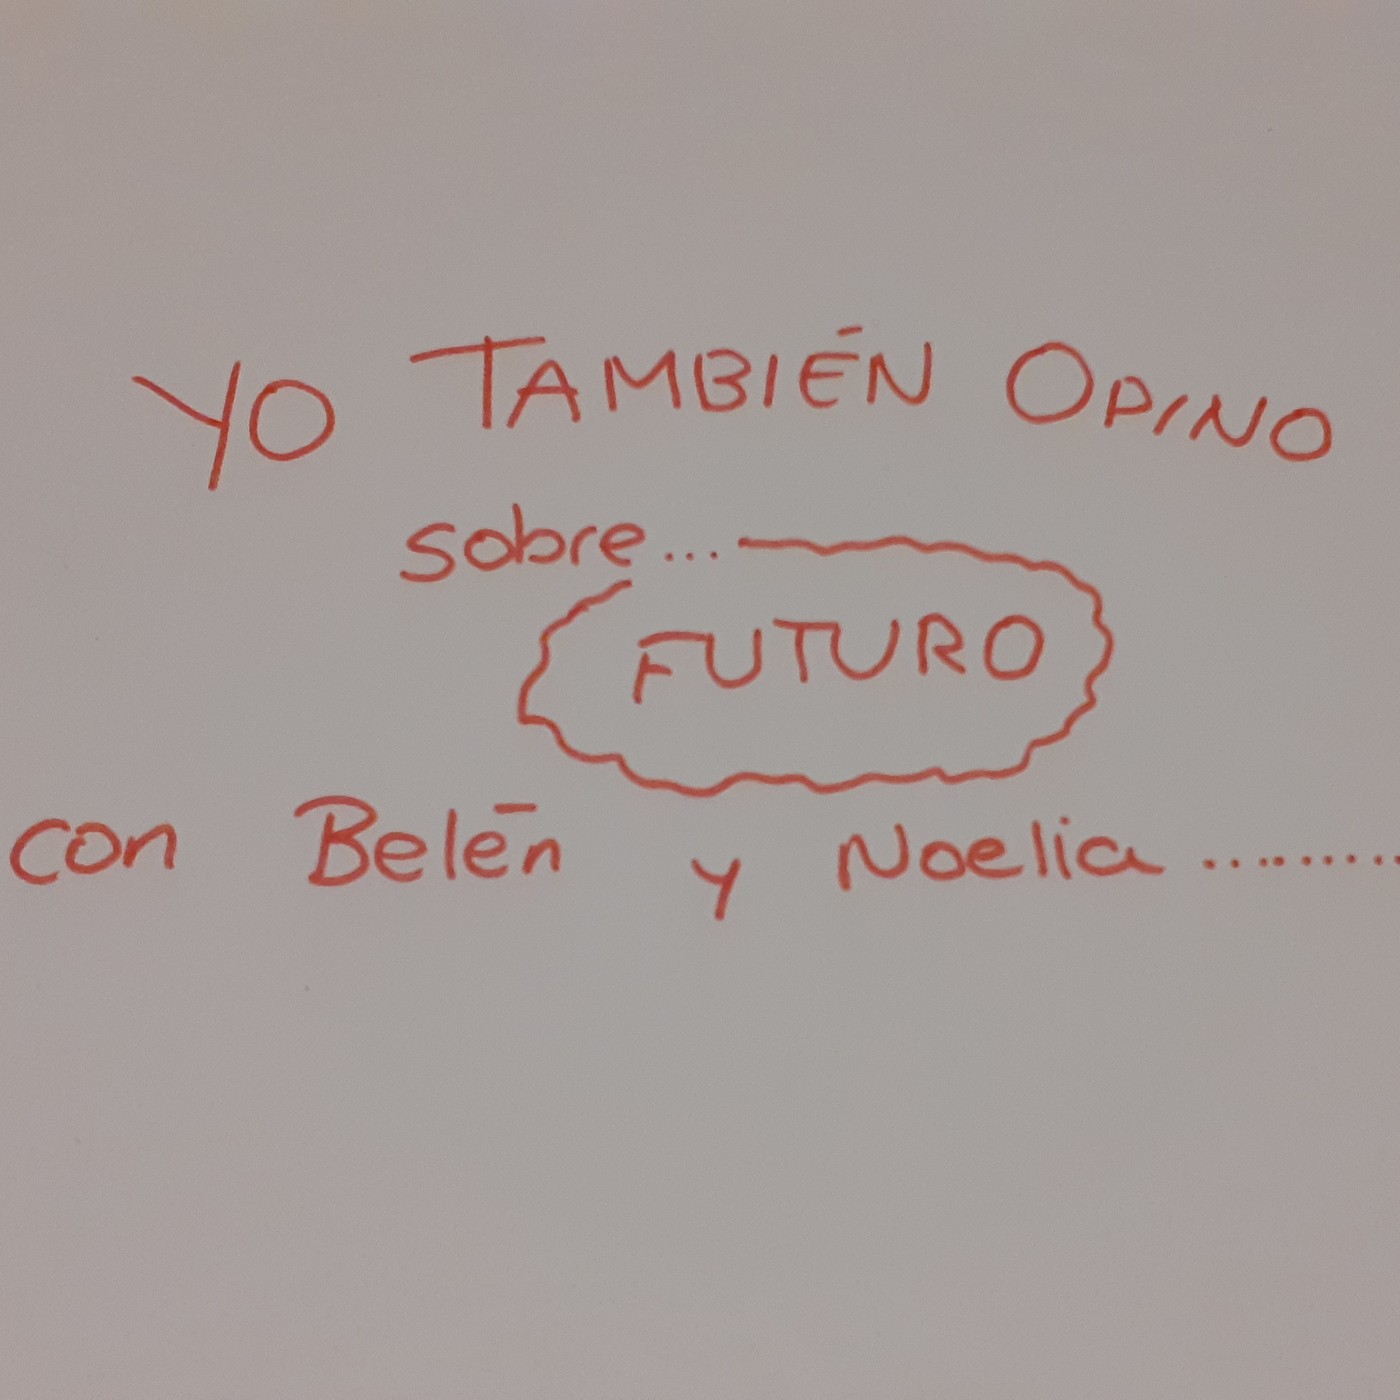 YO TAMBIÉN OPINO
sobre...
FUTURO
con Belén y Noelia.........